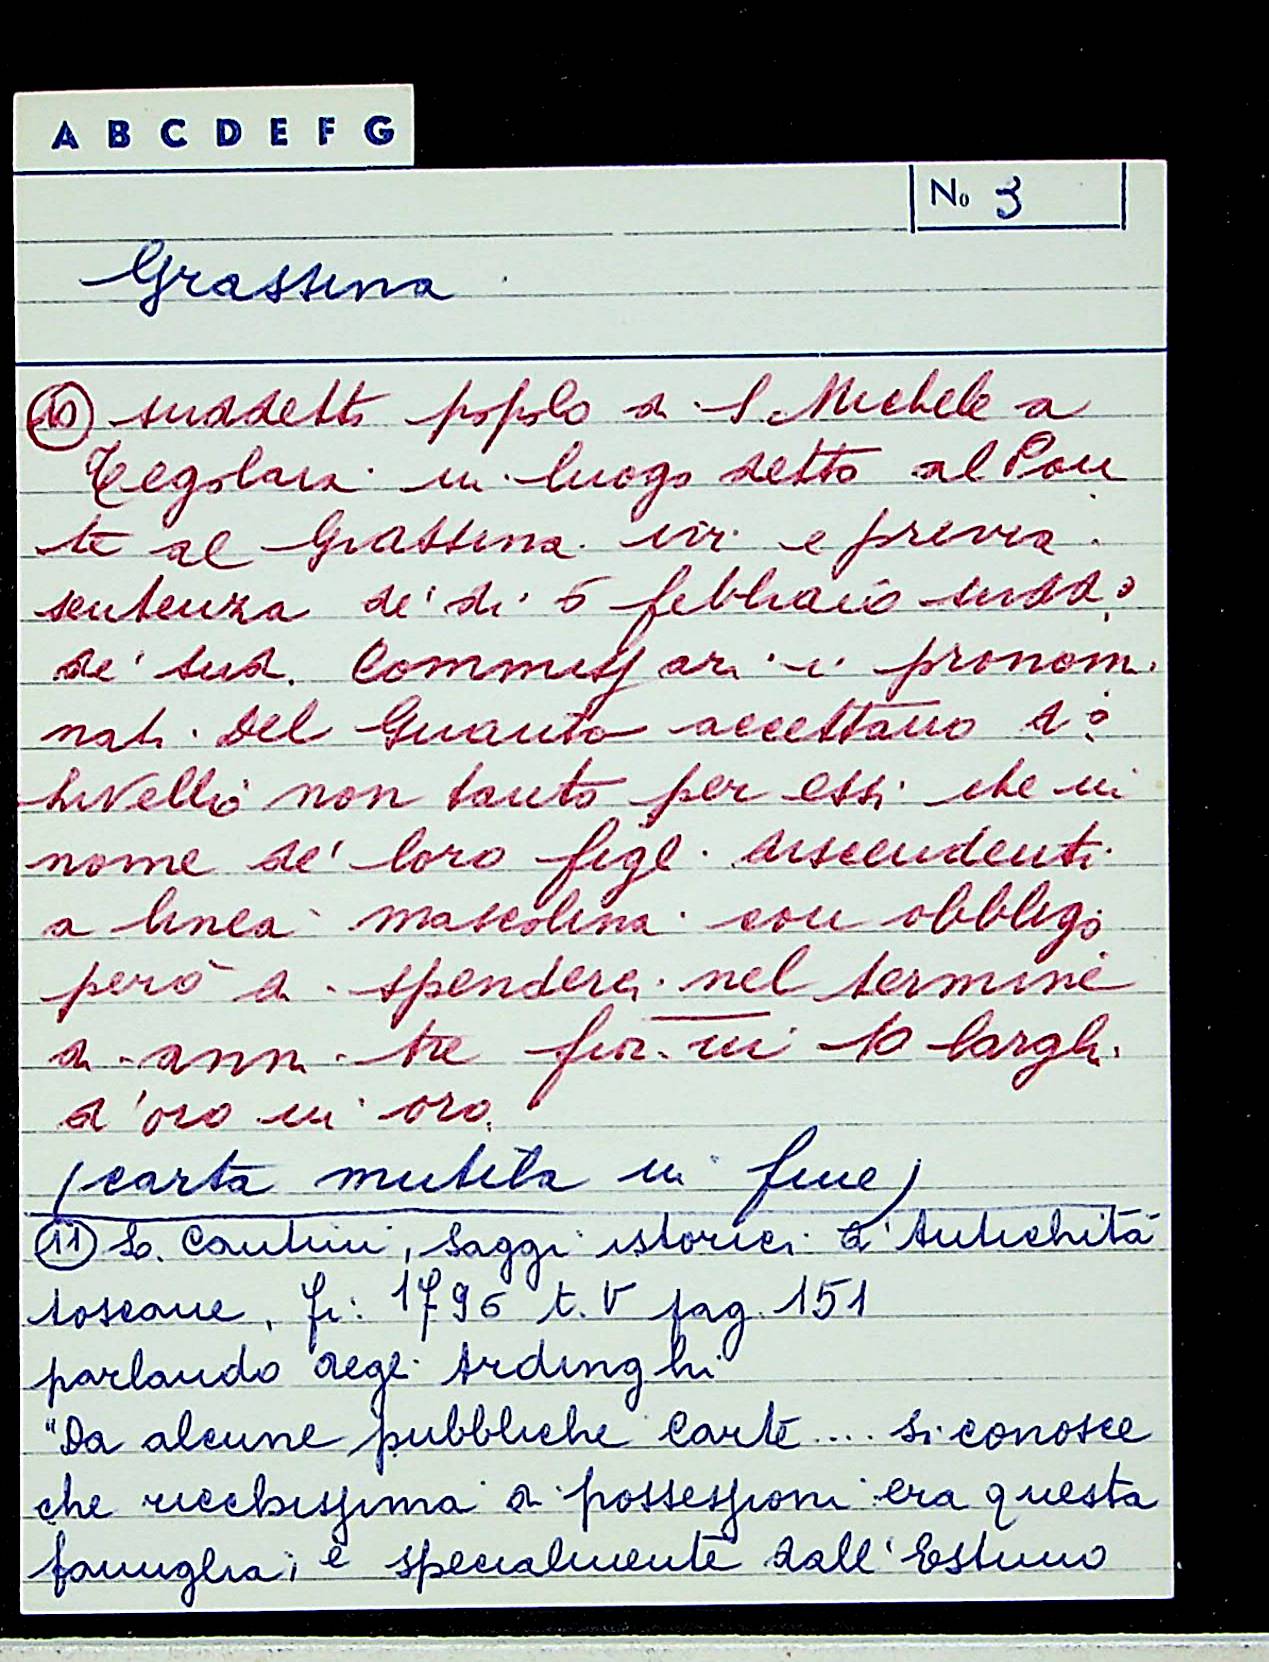 A B C D E F G
No 3
Grassina
10 suddetto popolo di S. Michele a
Tegolaia in luogo detto al Pon
te al Grassina ivi e previa
sentenza de' dì 6 febbraio sudd.o
de' sud. Commissari i pronom.
nati Del Guanto accettano d.o
livello non tanto per essi che in
nome de' loro figl. discendenti
a linea mascolina con obbligo
però di spenderci nel termine
di anni tre fior.ni 10 larghi
d'oro in oro.
(carta mutila in fine)
11 Lo. Cantini, Saggi istorici d'Antichità
toscane, Fi: 1796 t. V pag. 151
parlando degli Ardinghi
"Da alcune pubbliche Carte .... si conosce
che ricchissima di possessioni era questa
famiglia; e specialmente dall'Estimo